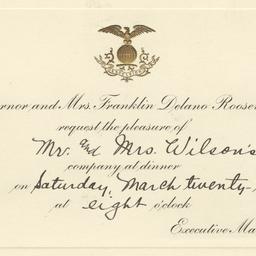 ernor and Mrs. Franklin Delano Roosev
request the pleasure of
Mr. and Mrs. Wilson's
company at dinner
on Saturday, March twenty-
at eight o'clock
Executive Ma